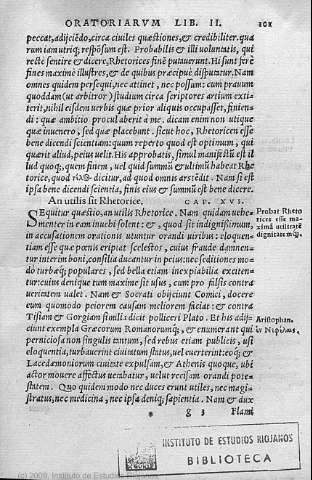 ORATORIARVM LIB. II. 101
peccat, adijcẽdo, circa ciuiles quæstiones, & credibiliter. qua
rum iam utriq; respõsum est. Probabilis & illi uoluntatis, qui
recte sentire & dicere, Rhetorices finē putauerunt. Hi sunt ferè
fines maximè illustres, & de quibus præcipuè disputatur. Nam
omnes quidem persequi, nec attinet, nec possum: cum prauum
quoddam (ut arbitror) studium circa scriptores artium exti-
terit, nihil eisdem uerbis quæ prior aliquis occupasset, finien-
di: quæ ambitio procul aberit à me. dicam enim non utique
quæ inuenero, sed quæ placebunt. sicut hoc, Rhetoricen esse
bene dicendi scientiam: quum reperto quod est optimum, qui
quærit aliud, peius uelit. His approbatis, simul manifestũ est il
lud quoq;, quem finem, uel quid summũ & ultimũ habeat Rhe-
torice, quod τέλος dicitur, ad quod omnis ars tẽdit. Nam si est
ipsa bene dicendi scientia, finis eius & summũ est bene dicere.
An utilis sit Rhetorice. CAP. XVI.
SEquitur quæstio, an utilis Rhetorice. Nam quidam uehe-
menter in eam inuehi solent: &, quod sit indignissimum,
in accusationem orationis utuntur orandi uiribus: eloquen-
tiam esse quæ pœnis eripiat scelestos, cuius fraude damnen-
tur interim boni, consilia ducantur in peius: nec seditiones mo-
dò turbæq; populares, sed bella etiam inexpiabilia exciten-
tur: cuius denique tum maxime sit usus, cum pro falsis contra
ueritatem ualet. Nam & Socrati obijciunt Comici, docere
eum quomodo peiorem causam meliorem faciat: & contra
Tisiam & Gorgian similia dicit polliceri Plato. Et his adij-
ciunt exempla Græcorum Romanorumq;, & enumerant qui
perniciosa non singulis tantum, sed rebus etiam publicis, usi
eloquentia, turbauerint ciuitatum status, uel euerterint: eoq; &
Lacedæmoniorum ciuitate expulsam, & Athenis quoque, ubi
actor mouere affectus uetabatur, uelut recisam orandi pote-
statem. Quo quidem modo nec duces erunt utiles, nec magi-
stratus, nec medicina, nec ipsa deniq; sapientia. Nam & dux
g 3 Flami
Probat Rheto
ricen esse ma
ximã utilitatē
dignitatemq;.
Aristophan.
in Νεφέλαις.
INSTITUTO DE ESTUDIOS RIOJANOS
BIBLIOTECA
(c) 2009. Instituto de Estudios Riojanos